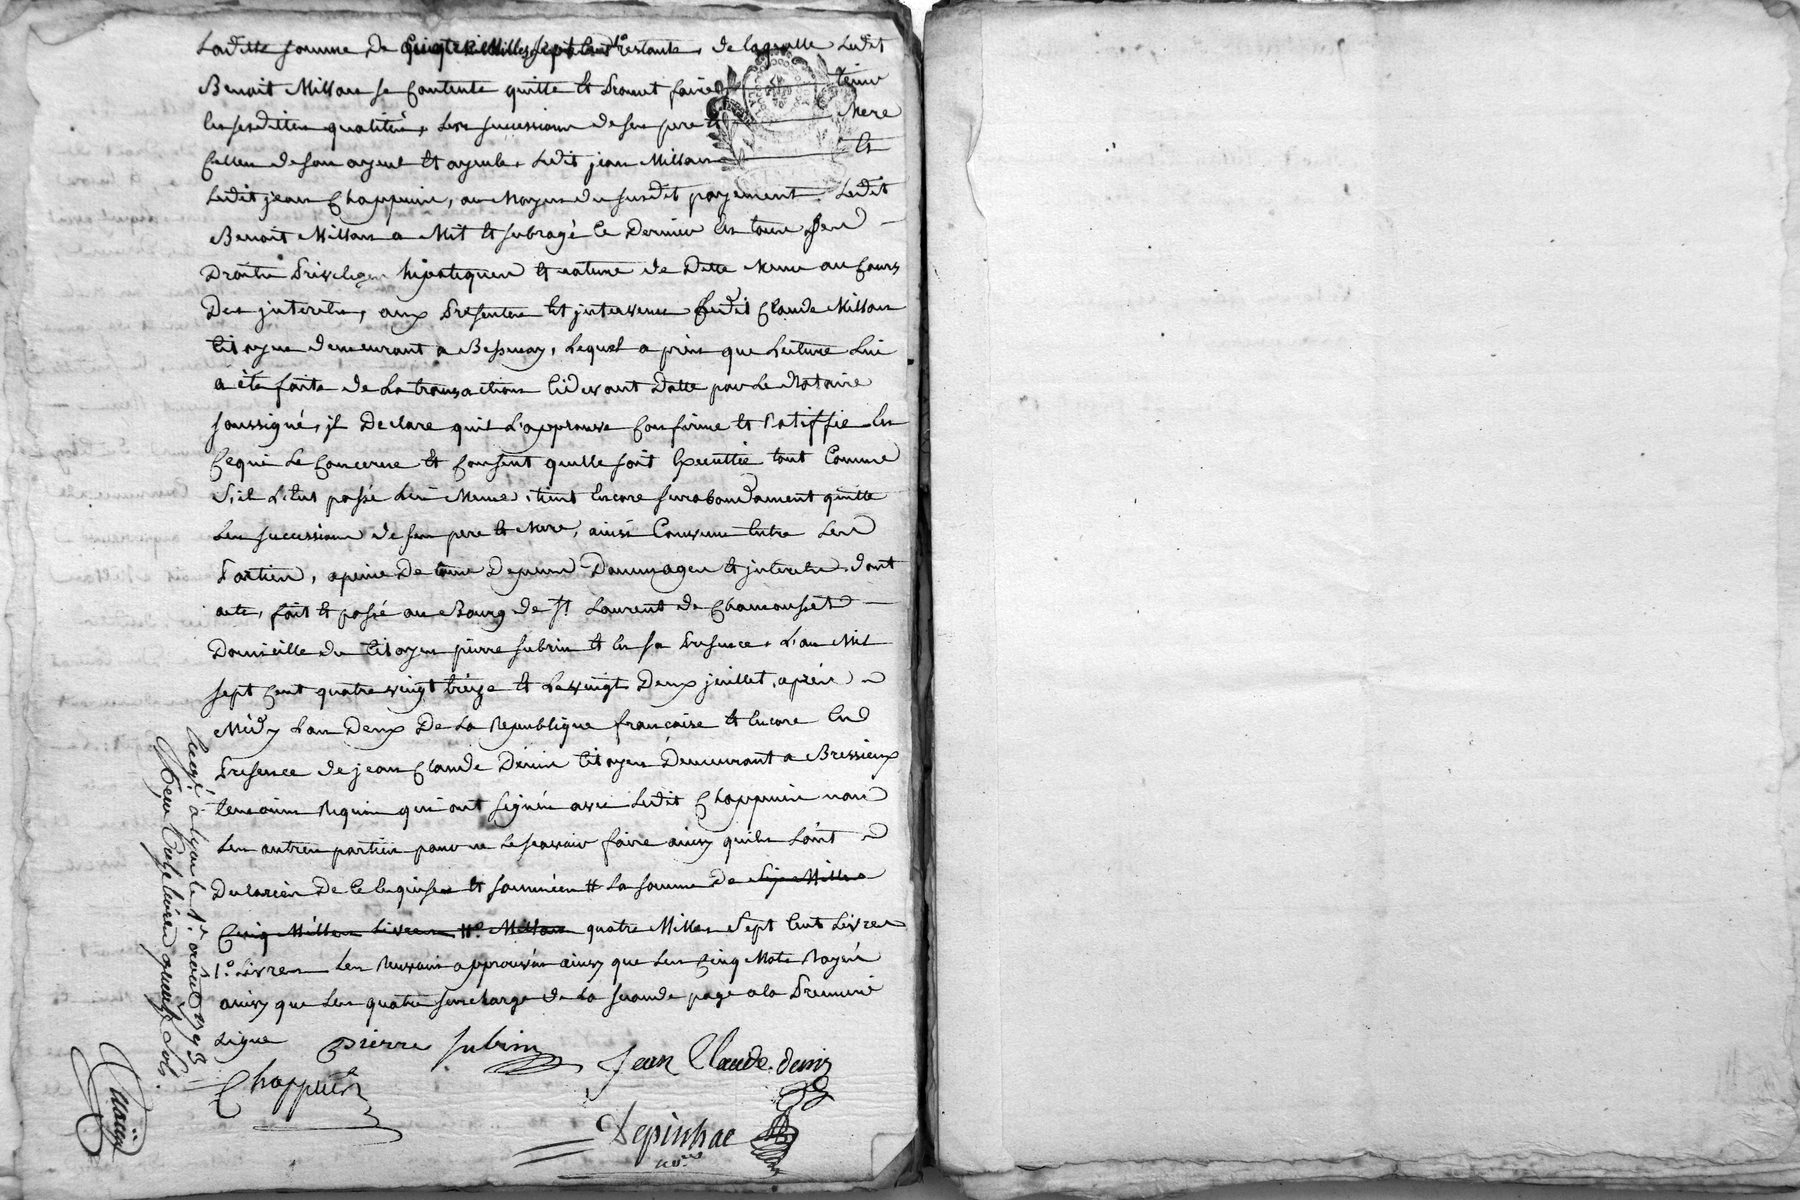 Laditte somme de quatre Milles sept Cent 1° restante, de laquelle Ledit
Benoit Millon se Contente quitte et promet faire tenir
les susdittes qualités, les successions de ses pere et Mere
Celles de son ayeul et ayeule, Ledit jean Millon et
Ledit jean Chappuis, au Moyen du susdit payement Ledit
Benoit Millon a Mit et subrogé ce Dernier en tous ses
Droits Privileges hipotiques et nature de Dette Meme au Cours
Des interets, aux presentes est intervenu Ledit Claude Millon
Citoyen demeurant a Bessenay, Lequel après que Lecture Lui
a été faite de La transaction Cidevant Datte par Le Notaire
soussigné, il Declare qu'il L'approuve Confirme et Ratiffie En
Ce qui Le Concerne et Consent quelle soit Executtée tout Comme
s'il L'eut passé Lui Meme, tient Encore surabondament quitte
Les successions de ses pere et Mere, ainsi Convenu Entre Les
Parties, a peine De tous Depens Dommages et interets, dont
acte, fait et passé au Bourg de St Laurent de Chamousset
Domicille du Citoyen pierre subrin et En sa presence, L'an Mil
sept Cent quatre vingt treize et Le vingt Deux juillet, après
Midy L'an Deux De La Republique francaise et Encore En
Presence de jean Claude Denis Citoyen Demeurant a Bressieux
temoins Requis qui ont signés avec Ledit Chappuis non
Les autres parties pour ne Le scavoir faire ainsy quils L'ont
Declarés De Ce Enquises et sommées # La somme De six Milles
Cinq Milles Livres 1° Millon quatre Milles Sept Cent Livres
1° Livres Les Renvois approuvés ainsy que Les Cinq Mots Rayés
ainsy que Les quatre surcharge de La seconde page a la Premiere
Ligne
pierre subrin
Jean Claude denis
Chappuis
Depinhac
no.re
Enregé a Lyon le 1.r août 1793
Reçu livres quinze sols